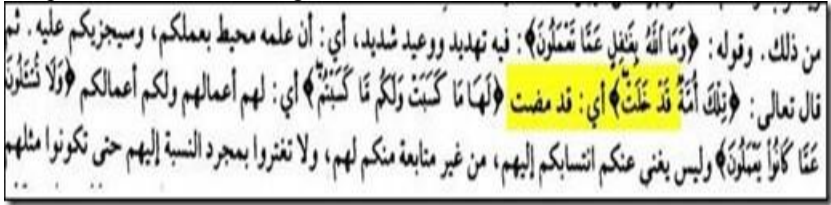 من ذلك. وقوله: ﴿وَمَا اللَّهُ بِغَافِلٍ عَمَّا تَعْمَلُونَ﴾: فيه تهديد ووعيد شديد، أي: أن علمه محيط بعملكم، وسيجزيكم عليه. ثم
قال تعالى: ﴿تِلْكَ أُمَّةٌ قَدْ خَلَتْ﴾ أي: قد مضت ﴿لَهَا مَا كَسَبَتْ وَلَكُم مَّا كَسَبْتُمْ﴾ أي: لهم أعمالهم ولكم أعمالكم ﴿وَلَا تُسْأَلُونَ
عَمَّا كَانُوا يَعْمَلُونَ﴾ وليس يغني عنكم انتسابكم إليهم، من غير متابعة منكم لهم، ولا تغتروا بمجرد النسبة إليهم حتى تكونوا مثلهم